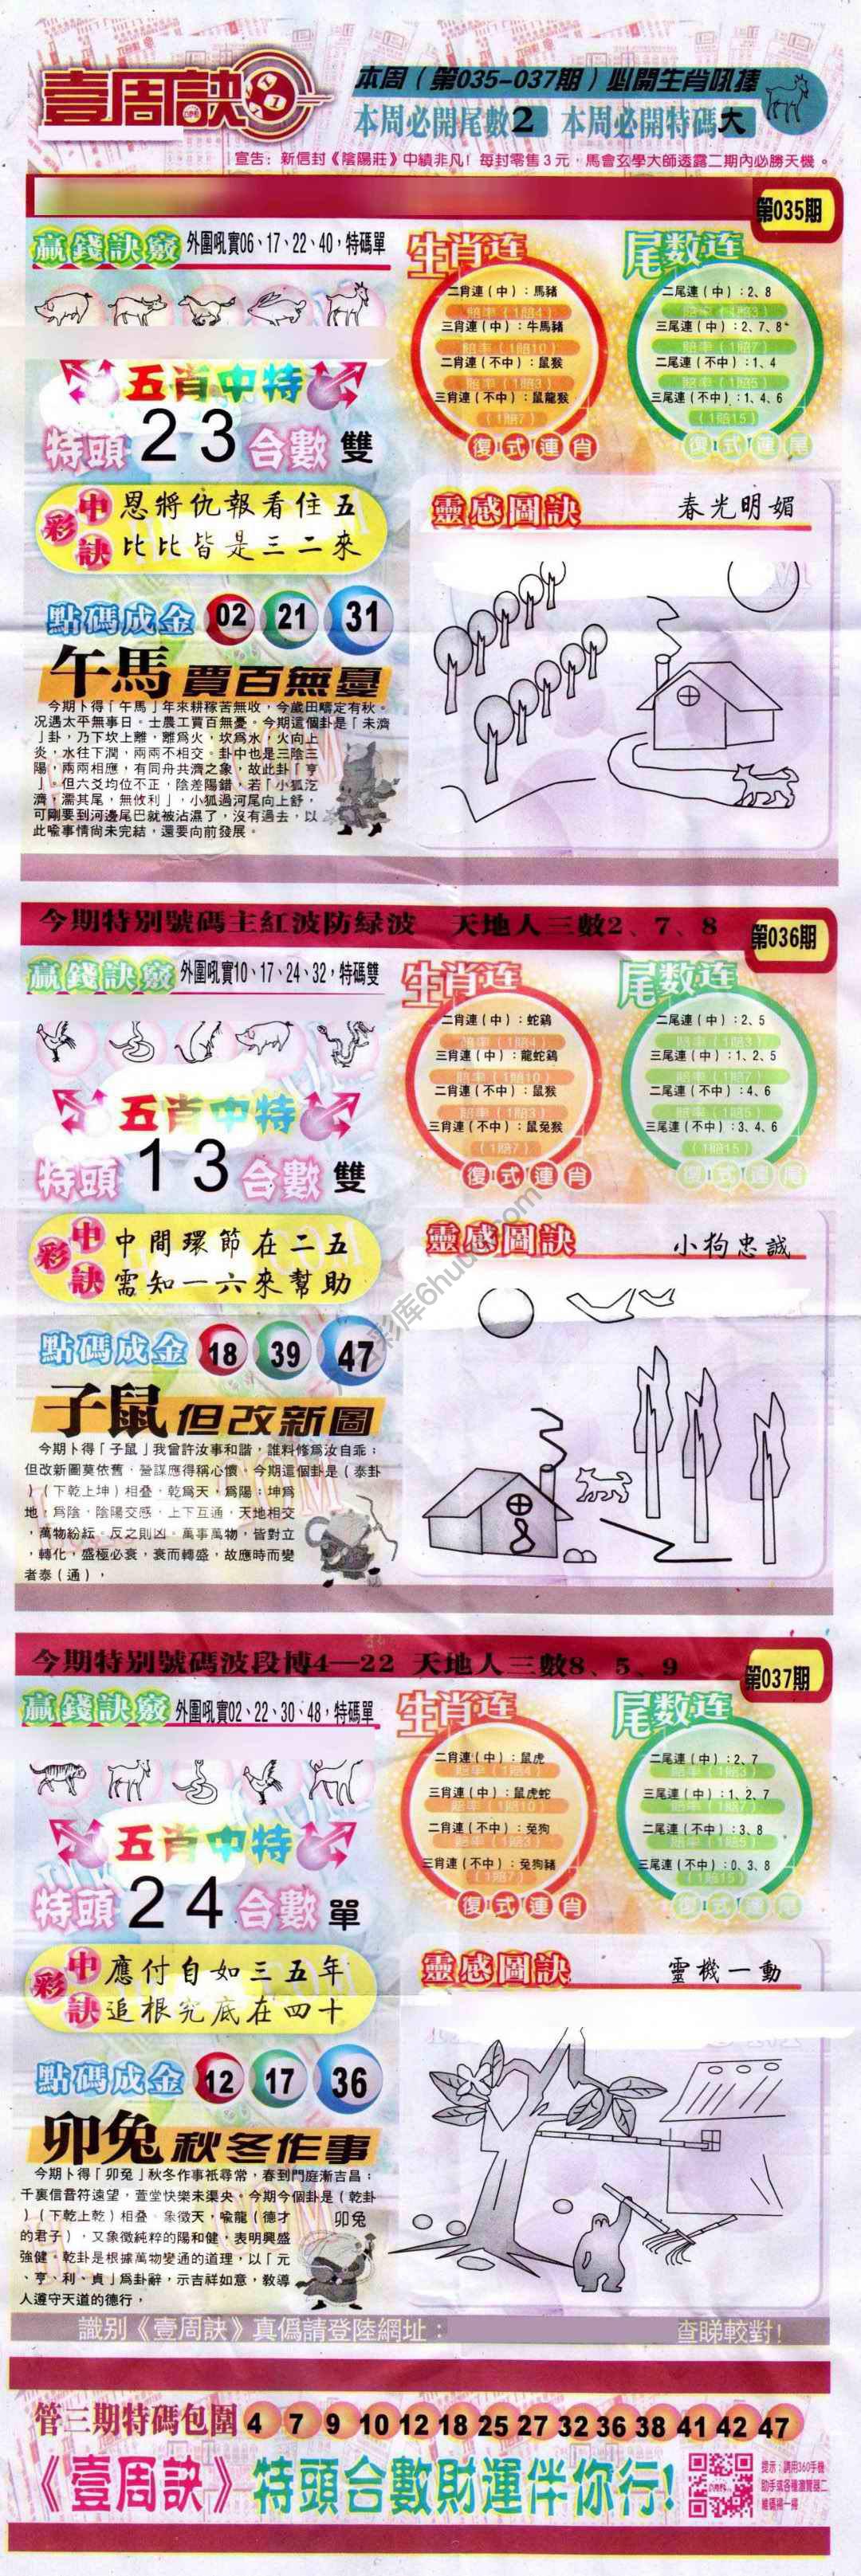 壹周訣
本周（第035-037期）必開生肖吼㨗
本周必開尾數2 本周必開特碼大
宣告：新信封《陰陽莊》中績非凡！每封零售3元，馬會玄學大師透露二期內必勝天機。
第035期
贏錢訣竅 外圍吼實06、17、22、40，特碼單
五肖中特
特頭 2 3 合數 雙
中彩訣
恩將仇報看住五
比比皆是三二來
點碼成金 02 21 31
午馬 賈百無憂
今期卜得「午馬」年來耕稼苦無收，今歲田疇定有秋。
况遇太平無事日。士農工賈百無憂。今期這個卦是「未濟
」卦，乃下坎上離，離爲火，坎爲水，火向上
炎，水往下潤，兩兩不相交。卦中也是三陰三
陽，兩兩相應，有同舟共濟之象，故此卦「亨
」。但六爻均位不正，陰差陽錯，若「小狐汔
濟，濡其尾，無攸利」，小狐過河尾向上舒，
可剛要到河邊尾巴就被沾濕了，沒有過去，以
此喩事情尚未完結，還要向前發展。
生肖连
二肖連（中）：馬豬
賠率（1賠4）
三肖連（中）：牛馬豬
賠率（1賠10）
二肖連（不中）：鼠猴
賠率（1賠3）
三肖連（不中）：鼠龍猴
（1賠7）
復式連肖
尾数连
二尾連（中）：2、8
賠率（1賠3）
三尾連（中）：2、7、8
賠率（1賠7）
二尾連（不中）：1、4
賠率（1賠5）
三尾連（不中）：1、4、6
（1賠15）
復式連尾
靈感圖訣 春光明媚
今期特別號碼主紅波防緑波 天地人三數2、7、8
第036期
贏錢訣竅 外圍吼實10、17、24、32，特碼雙
五肖中特
特頭 1 3 合數 雙
中彩訣
中間環節在二五
需知一六來幫助
點碼成金 18 39 47
子鼠 但改新圖
今期卜得「子鼠」我曾許汝事和諧，誰料修爲汝自乖；
但改新圖莫依舊，營謀應得稱心懷。今期這個卦是（泰卦
）（下乾上坤）相叠，乾爲天，爲陽；坤爲
地，爲陰，陰陽交感，上下互通，天地相交
，萬物紛紜。反之則凶。萬事萬物，皆對立
，轉化，盛極必衰，衰而轉盛，故應時而變
者泰（通），
生肖连
二肖連（中）：蛇鷄
賠率（1賠4）
三肖連（中）：龍蛇鷄
賠率（1賠10）
二肖連（不中）：鼠猴
賠率（1賠3）
三肖連（不中）：鼠兔猴
（1賠7）
復式連肖
尾数连
二尾連（中）：2、5
賠率（1賠3）
三尾連（中）：1、2、5
賠率（1賠7）
二尾連（不中）：4、6
賠率（1賠5）
三尾連（不中）：3、4、6
（1賠15）
復式連尾
靈感圖訣 小狗忠誠
彩库6hudu.com
今期特別號碼波段博4—22 天地人三數8、5、9
第037期
贏錢訣竅 外圍吼實02、22、30、48，特碼單
五肖中特
特頭 2 4 合數 單
中彩訣
應付自如三五年
追根究底在四十
點碼成金 12 17 36
卯兔 秋冬作事
今期卜得「卯兔」秋冬作事衹尋常，春到門庭漸吉昌；
千裏信音符遠望，萱堂快樂未渠央。今期今個卦是（乾卦
）（下乾上乾）相叠。象徵天，喩龍（德才
的君子），又象徵純粹的陽和健，表明興盛
強健。乾卦是根據萬物變通的道理，以「元
、亨、利、貞」爲卦辭，示吉祥如意，敎導
人遵守天道的德行，
卯兔
生肖连
二肖連（中）：鼠虎
賠率（1賠4）
三肖連（中）：鼠虎蛇
賠率（1賠10）
二肖連（不中）：兔狗
賠率（1賠3）
三肖連（不中）：兔狗豬
（1賠7）
復式連肖
尾数连
二尾連（中）：2、7
賠率（1賠3）
三尾連（中）：1、2、7
賠率（1賠7）
二尾連（不中）：3、8
賠率（1賠5）
三尾連（不中）：0、3、8
（1賠15）
復式連尾
靈感圖訣 靈機一動
識別《壹周訣》真僞請登陸網址： 查睇較對！
管三期特碼包圍 4 7 9 10 12 18 25 27 32 36 38 41 42 47
《壹周訣》特頭合數財運伴你行！
提示：請用360手機
助手或各種瀏覽器二
維碼掃一掃